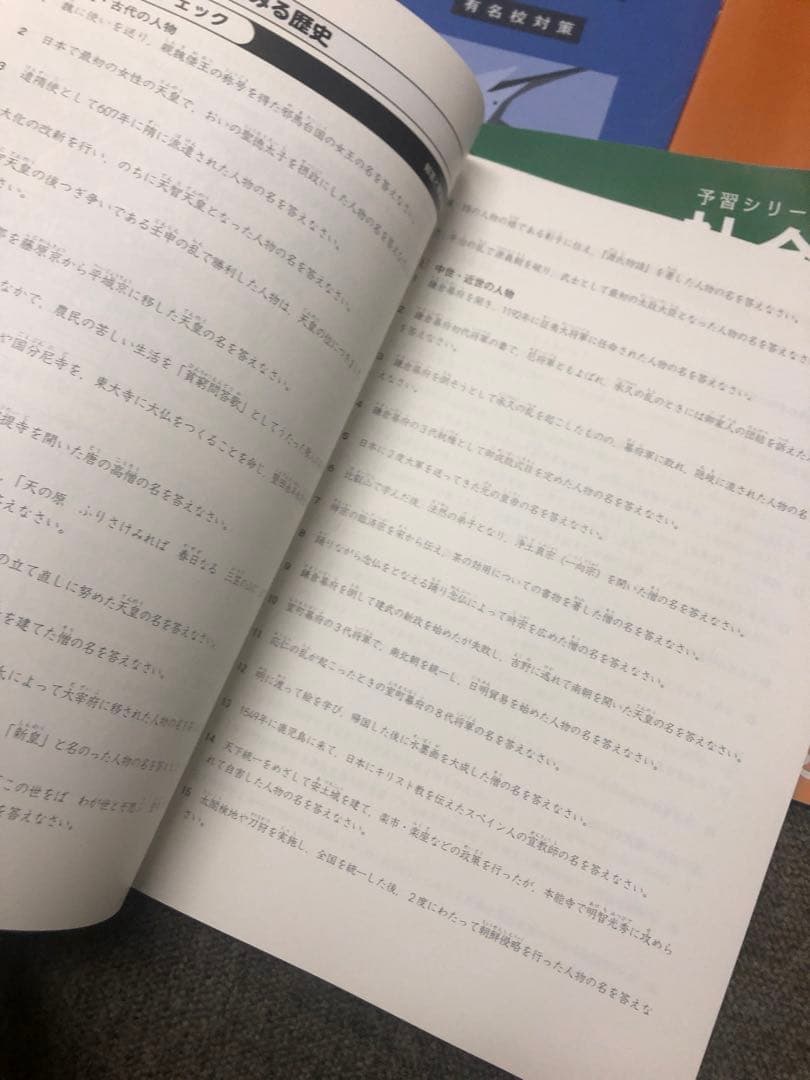 みる歴史
エック
・古代の人物
魏に使いを送り、親魏倭王の称号を得た邪馬台国の女王の名を答えなさい。
2 日本で最初の女性の天皇で、おいの聖徳太子を摂政にした人物の名を答えなさい。
3 遣隋使として607年に隋に派遣された人物の名を答えなさい。
大化の改新を行い、のちに天智天皇となった人物の名を答えなさい。
天皇の後つぎ争いである壬申の乱で勝利した人物は、天皇の位につき
さい。
都を藤原京から平城京に移した天皇の名を答えなさい。
なかで、農民の苦しい生活を「貧窮問答歌」としてうたった
や国分尼寺を、東大寺に大仏をつくることを命じ、
提寺を開いた唐の高僧の名を答えなさい。
、「天の原 ふりさけみれば 春日なる 三笠の
答えなさい。
の立て直しに努めた天皇の名を答えなさい。
を建てた僧の名を答えなさい。
氏によって大宰府に移された人物の名を答
「新皇」と名のった人物の名を答え
この世をば わが世とぞ思ふ
を答えなさい。
有名校対策
予習シリー
社会
の人物の娘である彰子に仕え、『源氏物語』を著した人物の名を答えなさい。
平治の乱で源義朝を破り、武士として最初の太政大臣となった人物の名を答えなさい。
中世・近世の人物
鎌倉幕府を開き、1192年に征夷大将軍に任命された人物の名を答えなさい。
2 鎌倉幕府初代将軍の妻で、尼将軍ともよばれ、承久の乱のときには御家人の団結を訴えた人
を答えなさい。
3 鎌倉幕府を倒そうとして承久の乱を起こしたものの、幕府軍に敗れ、隠岐に流された人物の名
えなさい。
4 鎌倉幕府の3代執権として御成敗式目を定めた人物の名を答えなさい。
5 日本に2度大軍を送ってきた元の皇帝の名を答えなさい。
6 比叡山で学んだ後、法然の弟子となり、浄土真宗（一向宗）を開いた僧の名を答えなさい。
7 禅宗の臨済宗を宋から伝え、茶の効用についての書物を著した僧の名を答えなさい。
8 踊りながら念仏をとなえる踊り念仏によって時宗を広めた僧の名を答えなさい。
9 鎌倉幕府を倒して建武の新政を始めたが失敗し、吉野に逃れて南朝を開いた天皇の名を答えなさい。
10 室町幕府の3代将軍で、南北朝を統一し、日明貿易を始めた人物の名を答えなさい。
11 応仁の乱が起こったときの室町幕府の8代将軍の名を答えなさい。
12 明に渡って絵を学び、帰国した後に水墨画を大成した僧の名を答えなさい。
13 1549年に鹿児島に来て、日本にキリスト教を伝えたスペイン人の宣教師の名を答えなさい。
14 天下統一をめざして安土城を建て、楽市・楽座などの政策を行ったが、本能寺で明智光秀に攻めら
れて自害した人物の名を答えなさい。
15 太閤検地や刀狩を実施し、全国を統一した後、2度にわたって朝鮮侵略を行った人物の名を答えな
さい。